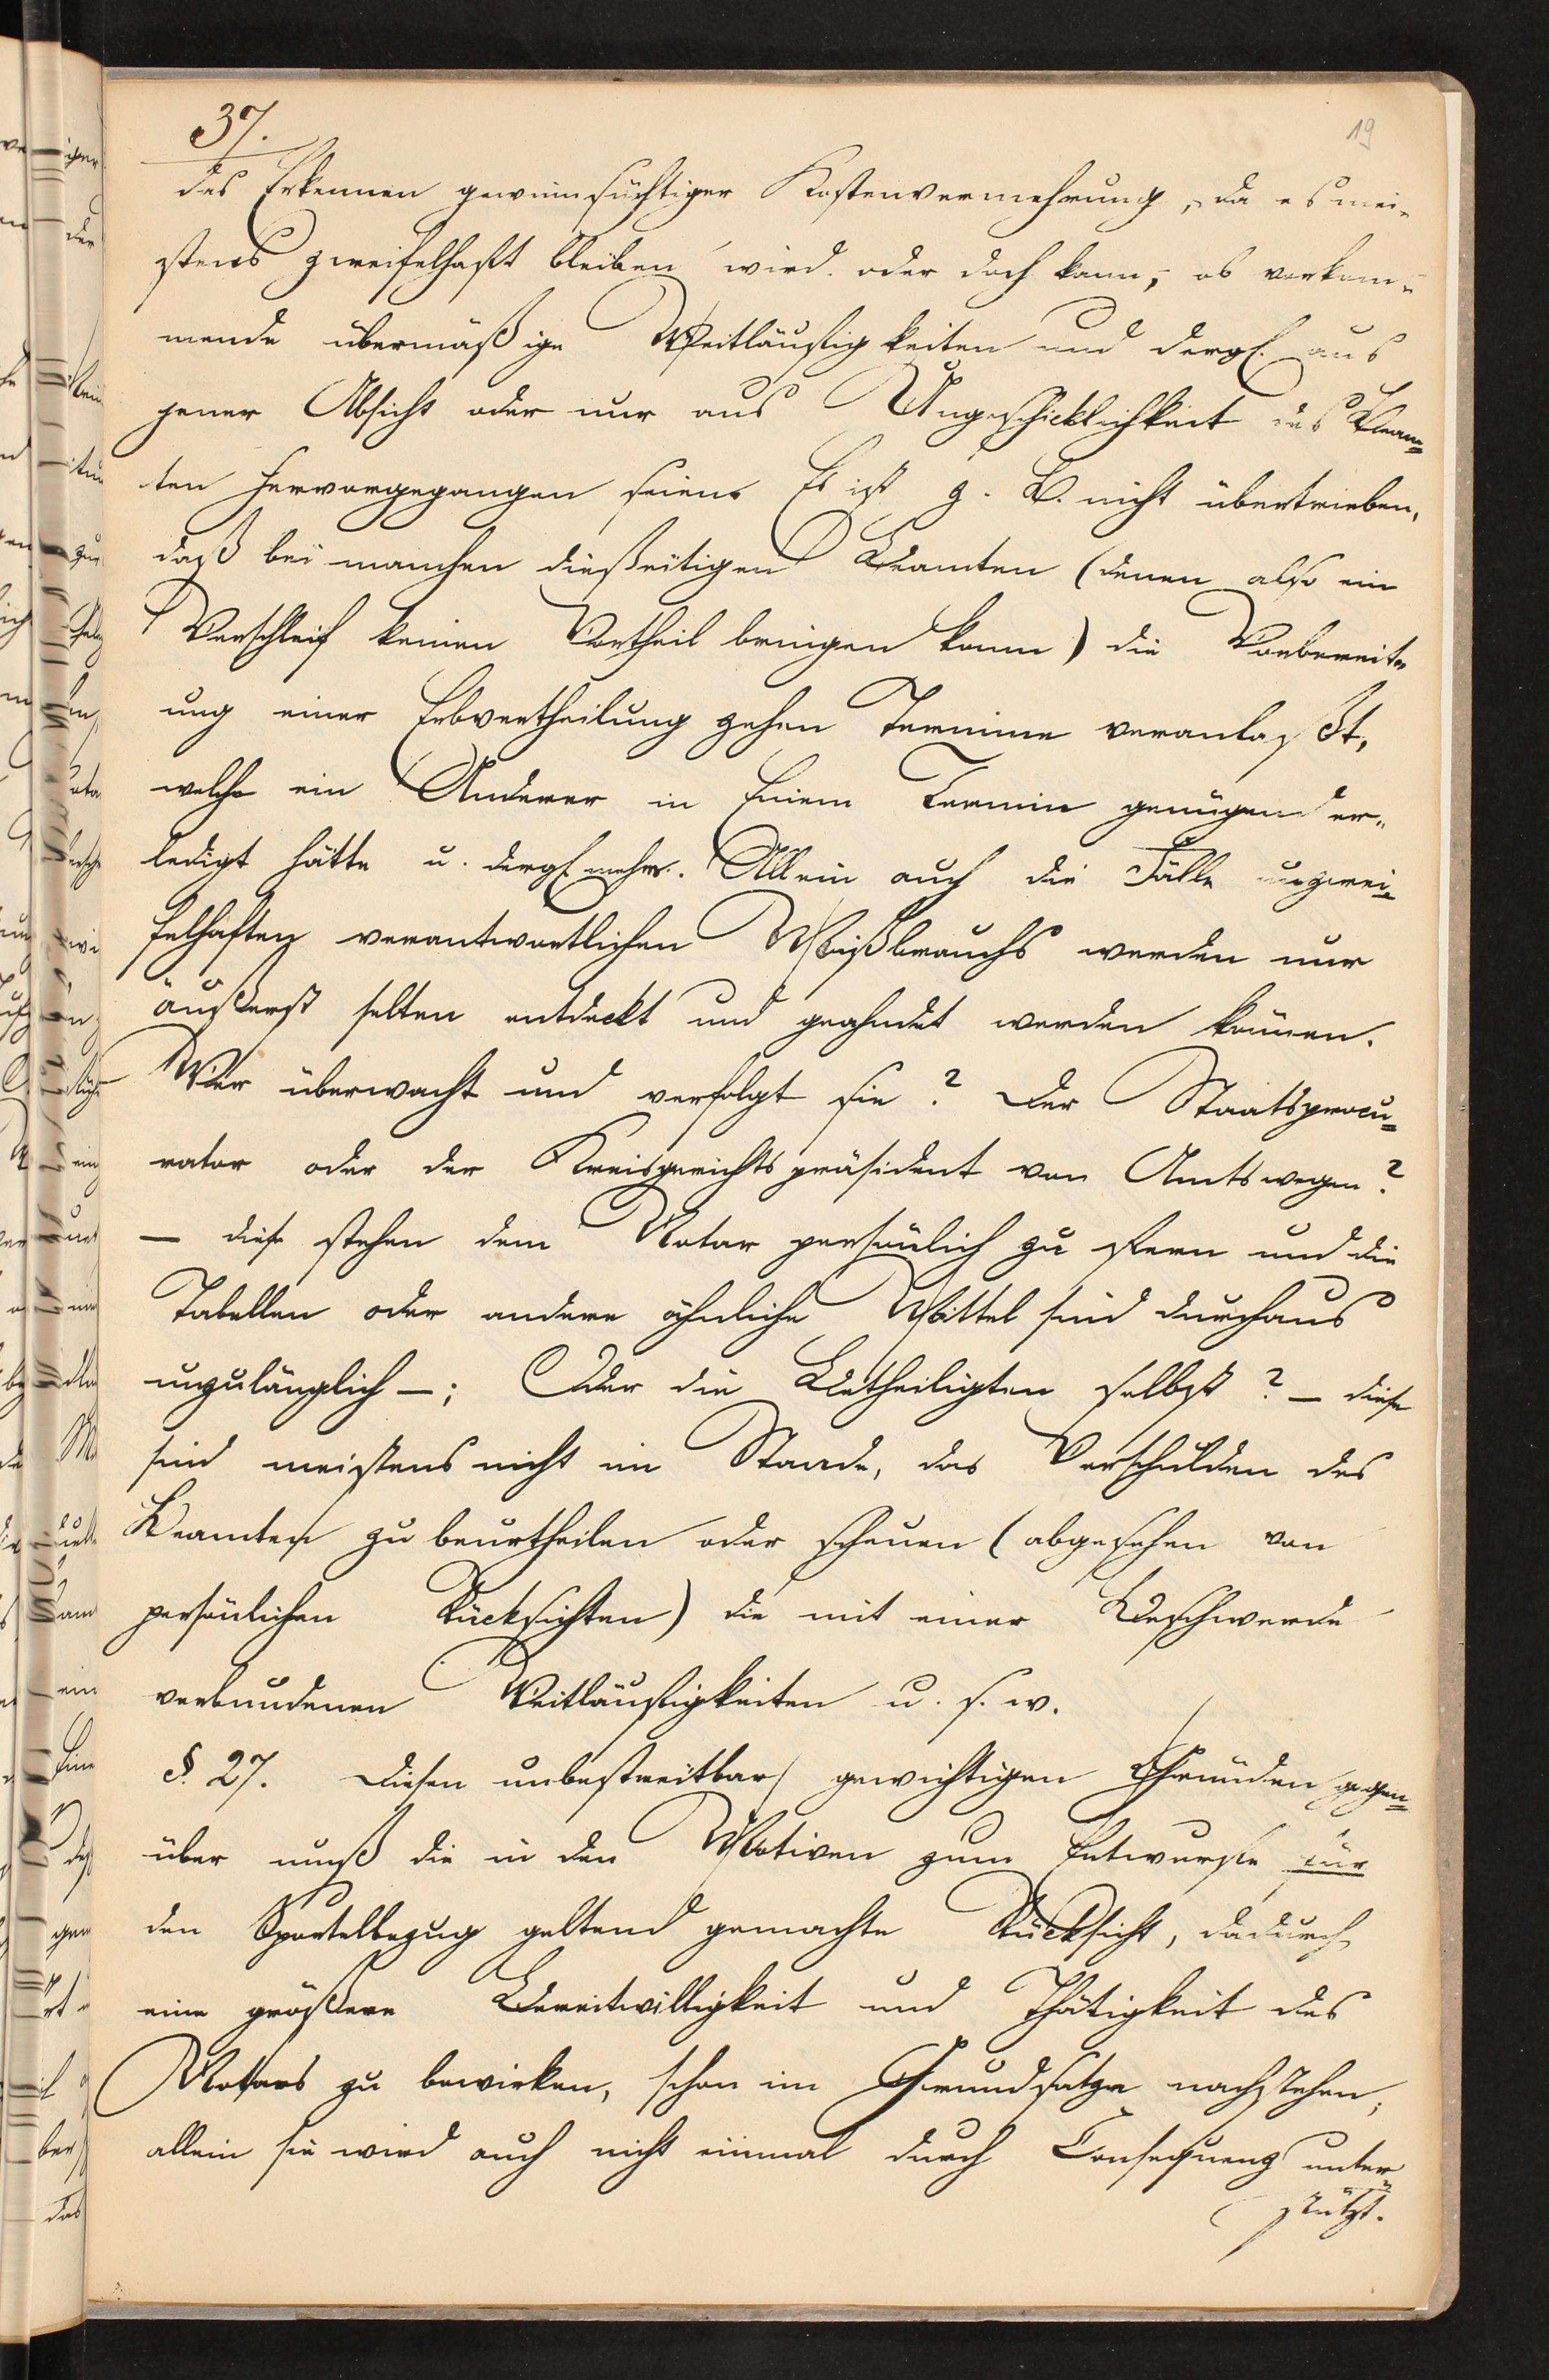 37.
19
des Erkennen gewinnsüchtiger Kostenvermehrung, da es mei-
stens zweifelhaft bleiben wird oder doch kann, ob vorkom-
mende übermäßige Weitläufigkeiten und dergl. aus
jener Absicht oder nur aus Ungeschicklichkeit des Beam-
ten hervorgegangen seien. Es ist z. B. nicht übertrieben,
daß bei manchen dießseitigen Beamten (denen also ein
Verschleif keinen Vortheil bringen kann) die Vorbereit-
ung einer Erbvertheilung zehen Termine veranlaßt,
welche ein Anderer in Einem Termin genügend er-
ledigt hätte u. dergl. mehr. Allein auch die Fälle unzwei-
felhaften verantwortlichen Mißbrauchs werden nur
äußerst selten entdeckt und geahndet werden können.
Wer überwacht und verfolgt sie? Der Staatsprocu-
rator oder der Kreisgerichtspräsident von Amtswegen?
— diese stehen dem Notar persönlich zu fern und die
Tabellen oder andere ähnliche Mittel sind durchaus
unzulänglich —; Oder die Betheiligten selbst? — diese
sind meistens nicht im Stande, das Verschulden des
Beamten zu beurtheilen oder scheuen (abgesehen von
persönlichen Rücksichten) die mit einer Beschwerde
verbundenen Weitläufigkeiten u. s. w.
§. 27. Diesen unbestreitbar gewichtigen Gründen gegen-
über muß die in den Motiven zum Entwurfe für
den Sportelbezug geltend gemachte Rücksicht, dadurch
eine größere Bereitwilligkeit und Thätigkeit des
Notars zu bewirken, schon im Grundsatze nachstehen,
allein sie wird auch nicht einmal durch Consequenz unter-
stützt.